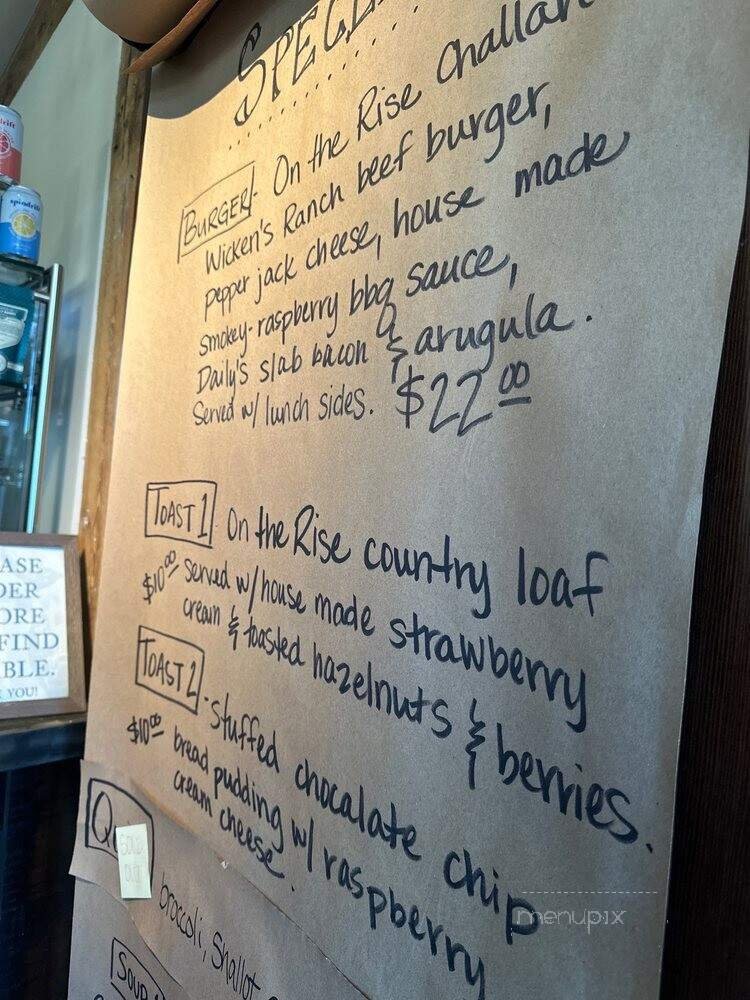 BURGER - On the Rise Challah
Wicken's Ranch beef burger,
pepper jack cheese, house made
smokey-raspberry bbq sauce,
Daily's slab bacon & arugula.
Served w/ lunch sides. $22.00
TOAST 1 - On the Rise country loaf
$10.00 served w/ house made strawberry
cream & toasted hazelnuts & berries.
TOAST 2 - stuffed chocalate chip
$10.00 bread pudding w/ raspberry
cream cheese.
SOLD
OUT
broccoli, shallot
SOUP
spindrift
DER
ORE
FIND
BLE.
YOU!
menupix